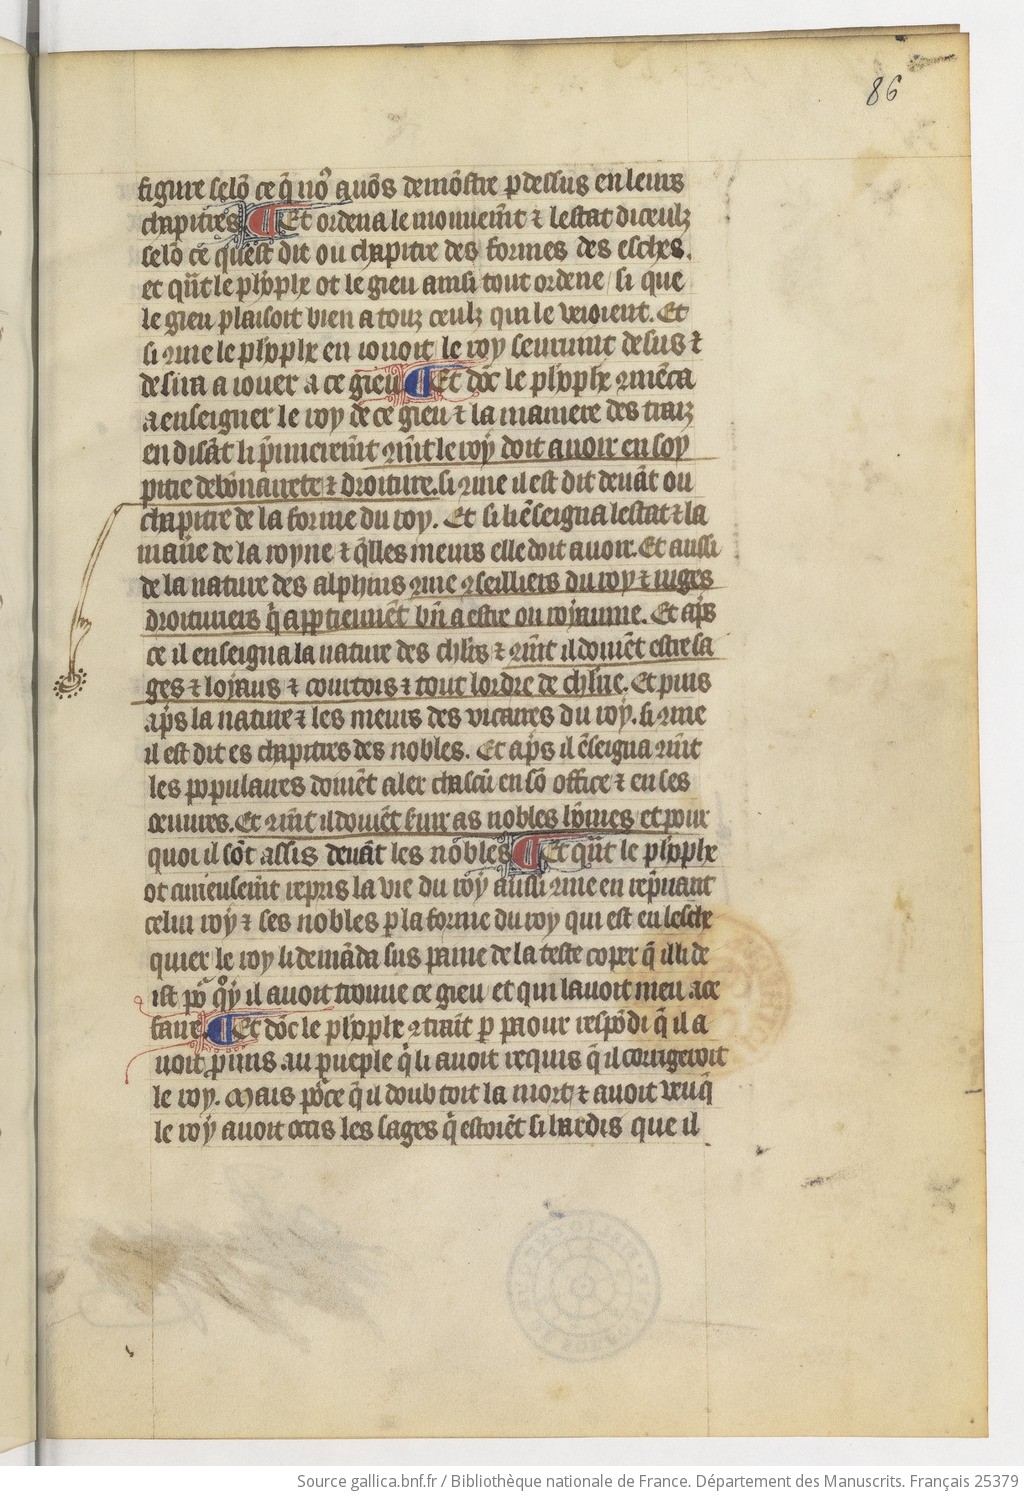 86
figure selō ce q̄ noꝰ auōs demōstre ꝑdessus en leurs
chapitres ¶ Et ordena le mouuemēt ⁊ lestat diceulz
selō ce quest dit ou chapitre des formes des esches.
et qn̄t le ph̄oph̄e ot le gieu ainsi tout ordene / si que
le gieu plaisoit bien a touz ceulz qui le veioient. Et
si ꝯme le ph̄oph̄e en iouoit le roy seuruint desus ⁊
desira a iouer a ce gieu ¶ Et dōc le ph̄oph̄e ꝯmēca
a enseigner le roy de ce gieu ⁊ la maniere des traiz
en disāt li p̄mieremēt ꝯmēt le roy doit auoir en soy
pitie debōnairete ⁊ droiture. si ꝯme il est dit deuāt ou
chapitre de la forme du roy. Et si li ēseigna lestat ⁊ la
man̄e de la royne ⁊ q̄lles meurs elle doit auoir. Et aussi
de la nature des alphins ꝯme ꝯseilliers du roy ⁊ iuges
droituriers q̄ appartienēt bn̄ a estre ou royaume. Et ap̄s
ce il enseigna la nature des ch̄lrs ⁊ ꝯmēt il doiuēt estre sa
ges ⁊ loyaus ⁊ courtois ⁊ tout lordre de ch̄lrie. Et puis
ap̄s la nature ⁊ les meurs des vicaires du roy. si ꝯme
il est dit es chapitres des nobles. Et ap̄s il ēseigna ꝯmēt
les populaires doiuēt aler chascū en sō office ⁊ en ses
œuures. Et ꝯmēt il doiuēt seruir as nobles hōmes et pour
quoi il sōt assis deuāt les nobles ¶ Et qn̄t le ph̄oph̄e
ot curieusemēt repris la vie du roy aussi ꝯme en rep̄nant
celui roy ⁊ ses nobles ꝑ la forme du roy qui est en lesche
quier le roy li demāda sus paine de la teste coper q̄ il li de
ist po͛ quoy il auoit trouue ce gieu et qui lauoit meu a ce
faire ¶ Et dōc le ph̄oph̄e ꝯtraīt ꝑ paour respōdi q̄ il a
uoit ꝓmis au pueple q̄ li auoit requis q̄ il corrigeroit
le roy. Mais po͛ce q̄ il doubtoit la mort ⁊ auoit veu q̄
le roy auoit occis les sages q̄ estoiēt si hardis que il
Source gallica.bnf.fr / Bibliothèque nationale de France. Département des Manuscrits. Français 25379